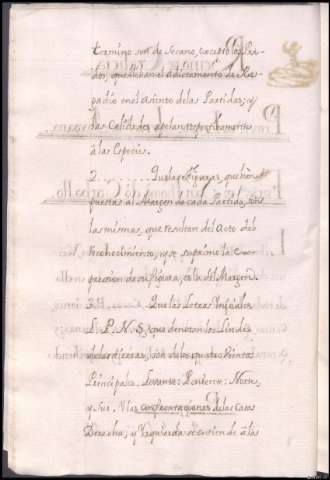 termino son de Secano, excepto los Pra-
dos, que llevan el Aditamento de Re-
gadio en el Asiento de las Partidas; y
las Calidades apelan respectivamente
à las Especies.
2........ Que las Figuras, que hàn
puestas al Margen de cada Partida, son
las mismas, que resultan del Acto del
Reconocimiento, y se suprime la Ex-
presion de su figura, es la del Margen.
3......... Que las Letras Iniciales
L. P. N. S. que denotan los Lindes
de las tierras, son de los quatro Vientos
Principales. Levante: Poniente: Norte,
y Sur. Y las confrontaciones de las Casas
Derecha, y Yzquierda se entiende à la